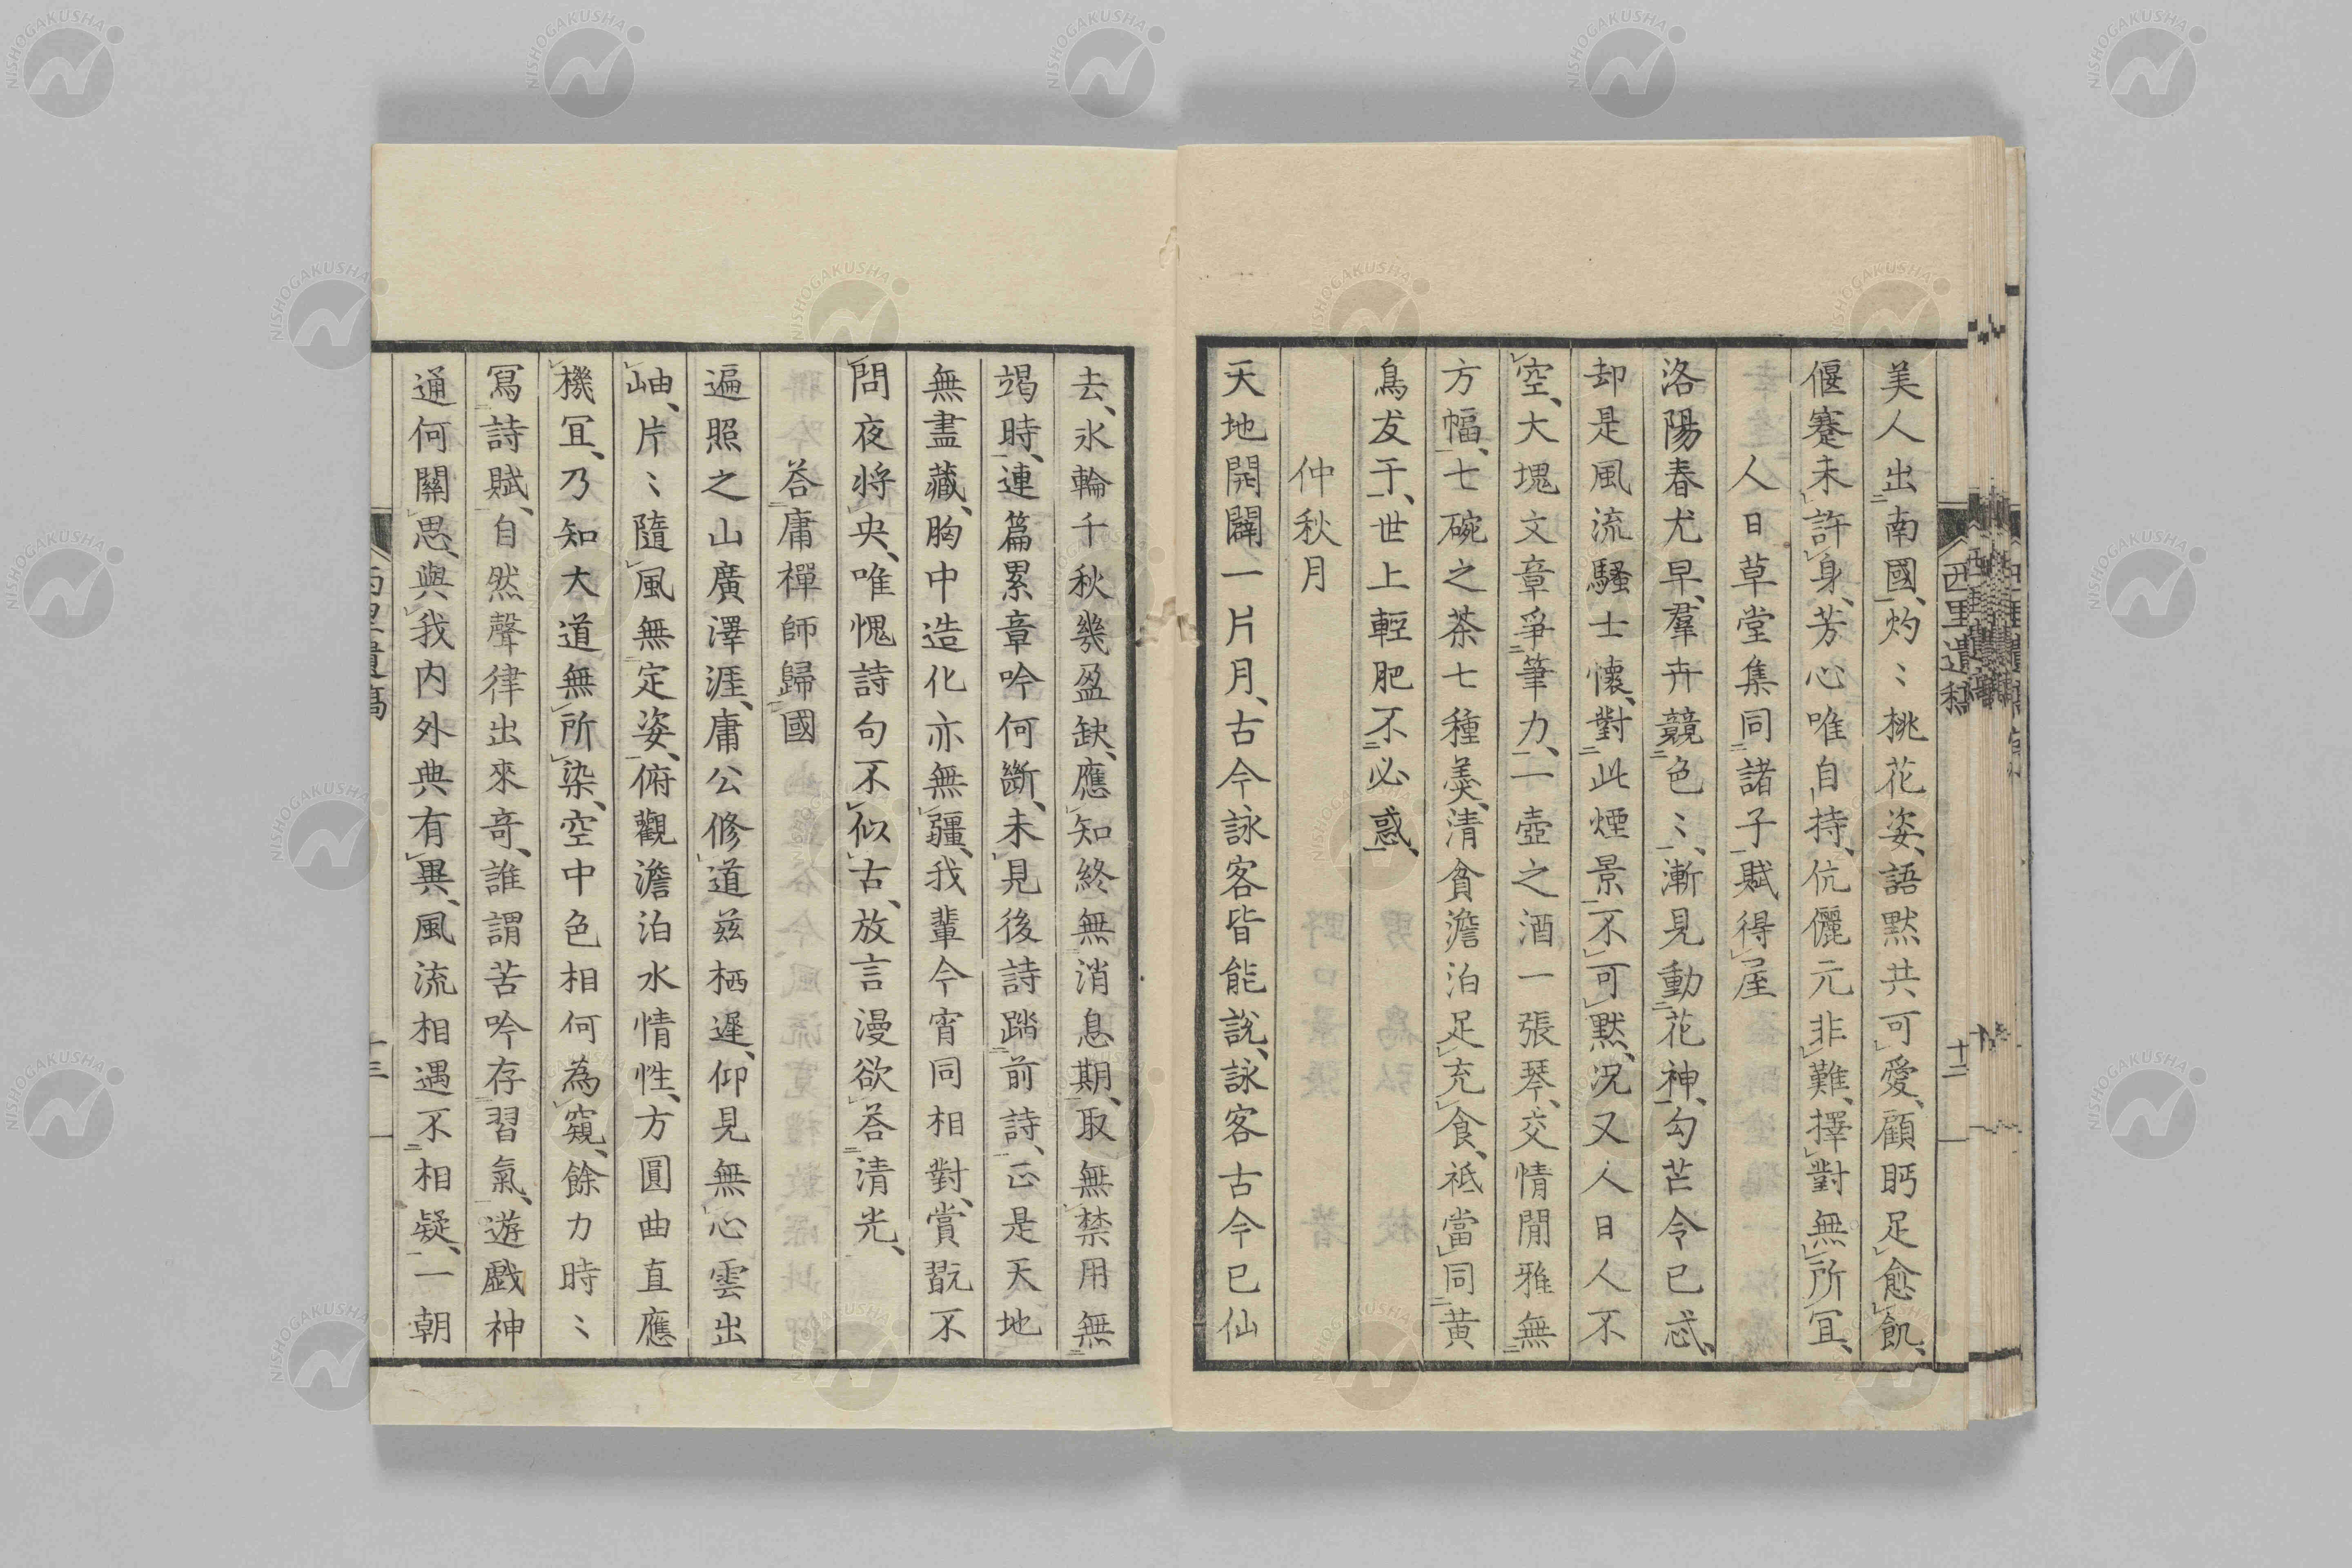 美人出南國、灼〻桃花姿、語黙共可愛、顧眄足愈飢、
偃蹇未許身、芳心唯自持、伉儷元非難、擇對無所冝、
人日草堂集同諸子賦得
洛陽春尤早、羣卉競色〻、漸見動花神、勾芒令已忒、
却是風流騷士懷、對此煙景不可黙、況又人日人不
空、大塊文章爭筆力、一壺之酒一張琴、交情閒雅無
方幅、七碗之茶七種羮、清貧澹泊足充食、祗當同黄
鳥友于、世上輕肥不必惑、
仲秋月
天地開闢一片月、古今詠客皆能說、詠客古今已仙
去、氷輪千秋幾盈缺、應知終無消息期、取無禁用無
竭時、連篇累章吟何斷、未見後詩踏前詩、正是天地
無盡藏、胸中造化亦無疆、我輩今宵同相對、賞翫不
問夜將央、唯愧詩句不似古、放言漫欲荅清光、
荅庸禪師歸國
遍照之山廣澤涯、庸公修道茲栖遲、仰見無心雲出
岫、片〻隨風無定姿、俯觀澹泊水情性、方圓曲直應
機冝、乃知大道無所染、空中色相何為窺、餘力時〻
冩詩賦、自然聲律出來奇、誰謂苦吟存習氣、遊戲神
通何關思、與我内外典有異、風流相遇不相疑、一朝
西里遺稿
十二